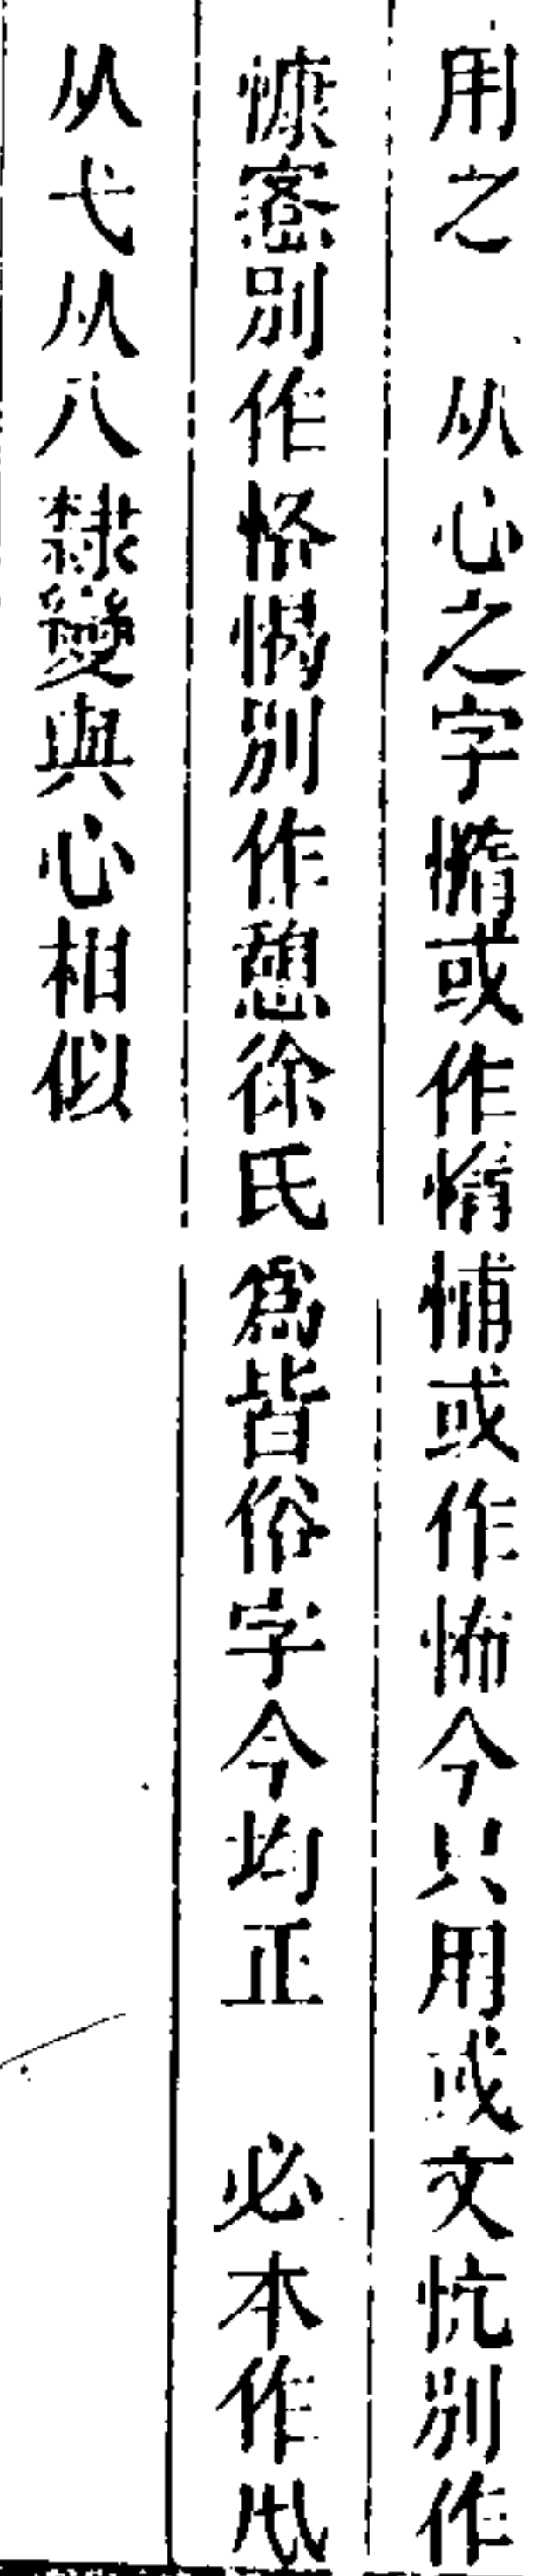 用之　从心之字憜或作惰悑或作怖今只用或文忼別作
慷愙別作恪愒別作憩徐氏為皆俗字今均正　必本作
从弋从八隸變與心相似